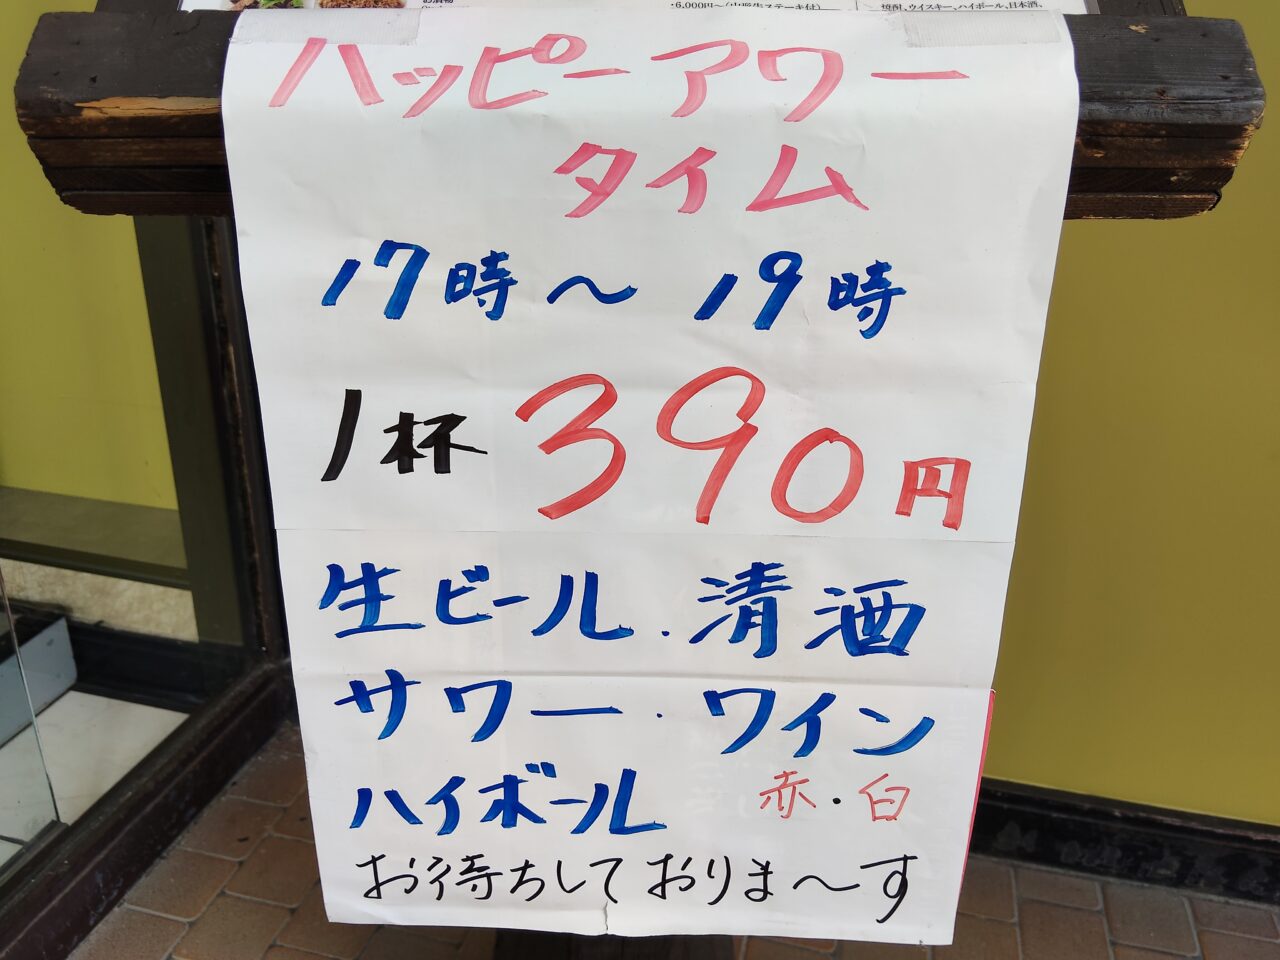 ・6,000円〜(山形牛ステーキ付)
焼酎、ウイスキー、ハイボール、日本酒、
ハッピーアワー
タイム
17時〜19時
1杯390円
生ビール・清酒
サワー・ワイン
ハイボール 赤・白
お待ちしておりま〜す